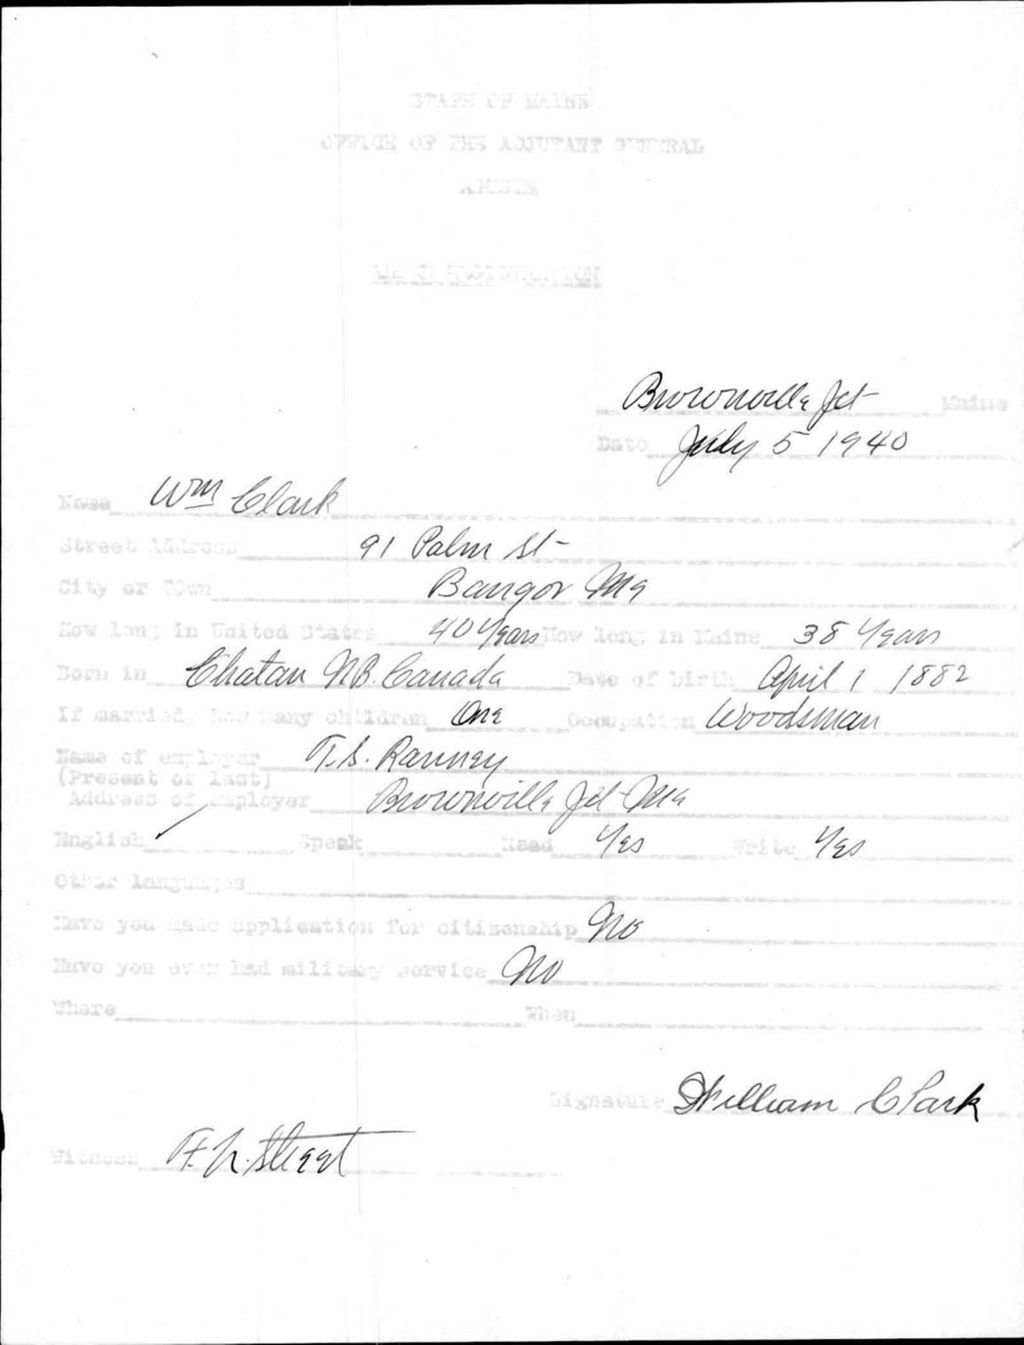 STATE OF MAINE
OFFICE OF THE ADJUTANT GENERAL
AUGUSTA
ALIEN REGISTRATION
Brownville Jct Maine
Date July 5 1940
Name Wm Clark
Street Address 91 Palm St
City or Town Bangor Me
How long in United States 40 Years How long in Maine 38 Years
Born in Chatan N.B. Canada Date of birth April 1 1882
If married, how many children One Occupation Woodsman
Name of employer T.S. Ranney
(Present or last)
Address of employer Brownville Jct Me
English Speak Read Yes Write Yes
Other languages
Have you made application for citizenship No
Have you ever had military service No
Where When
Signature William Clark
Witness